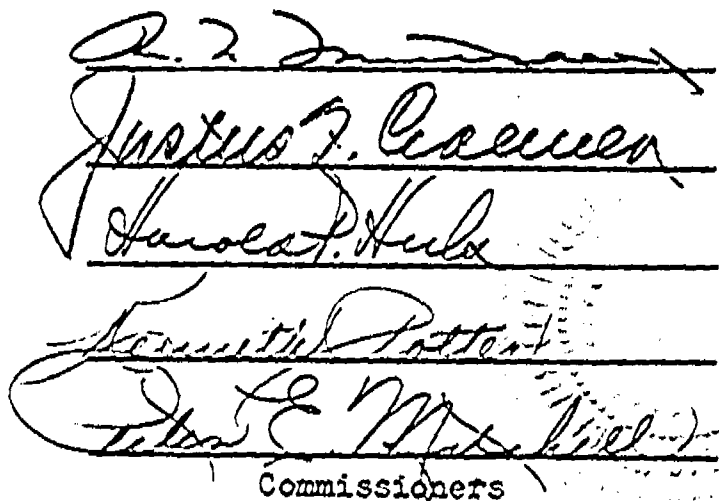 Justus F. Craemer
Harold P. Huls
Kenneth Potter
E. Mitchell
Commissioners